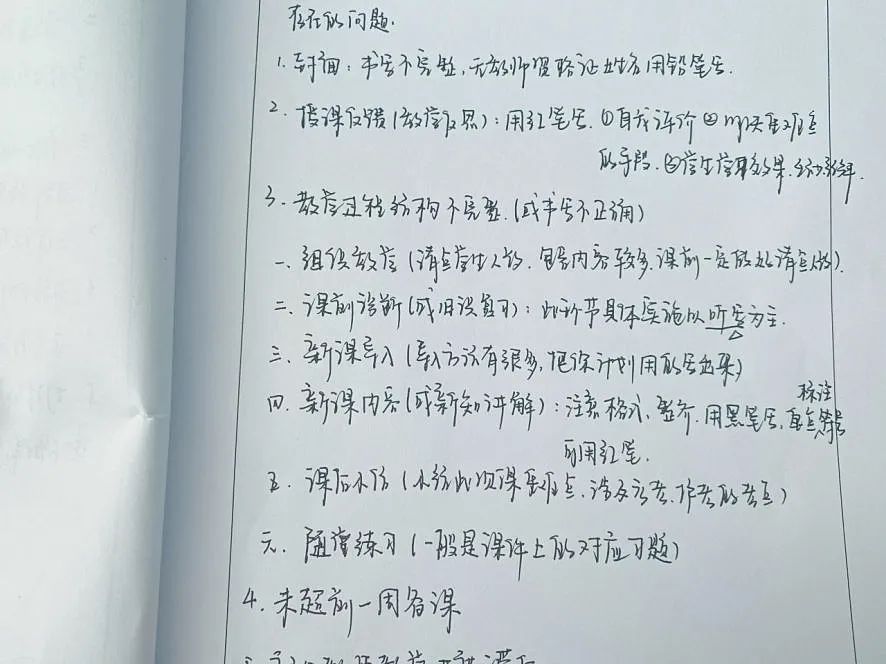 存在的问题.
1. 封面:书写不完整,无教师资格证姓名用铅笔写.
2. 授课反馈(教学反思):用红笔写.①自我评价②解决重难点
的手段.③学生学习效果.
3. 教学过程结构不完整.(或书写不正确)
一、组织教学(清点学生人数.内容较多.课前一定做好清点人数).
二、课前诊断(或旧识复习):此环节具体实施以听写为主.
三、新课导入(导入方法有很多,把你计划用的写出来)
标注
四、新课内容(或新知讲解):注意格式、整齐.用黑笔写,重点
可用红笔.
五、课后小结(小结此次课重难点.涉及的考点)
六. 随堂练习(一般是课件上的对应习题)
4. 未超前一周备课